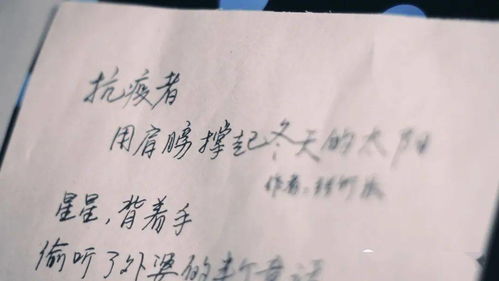 抗疫者
用肩膀撑起冬天的太阳
作者：
星星，背着手
偷听了外婆的半个童话